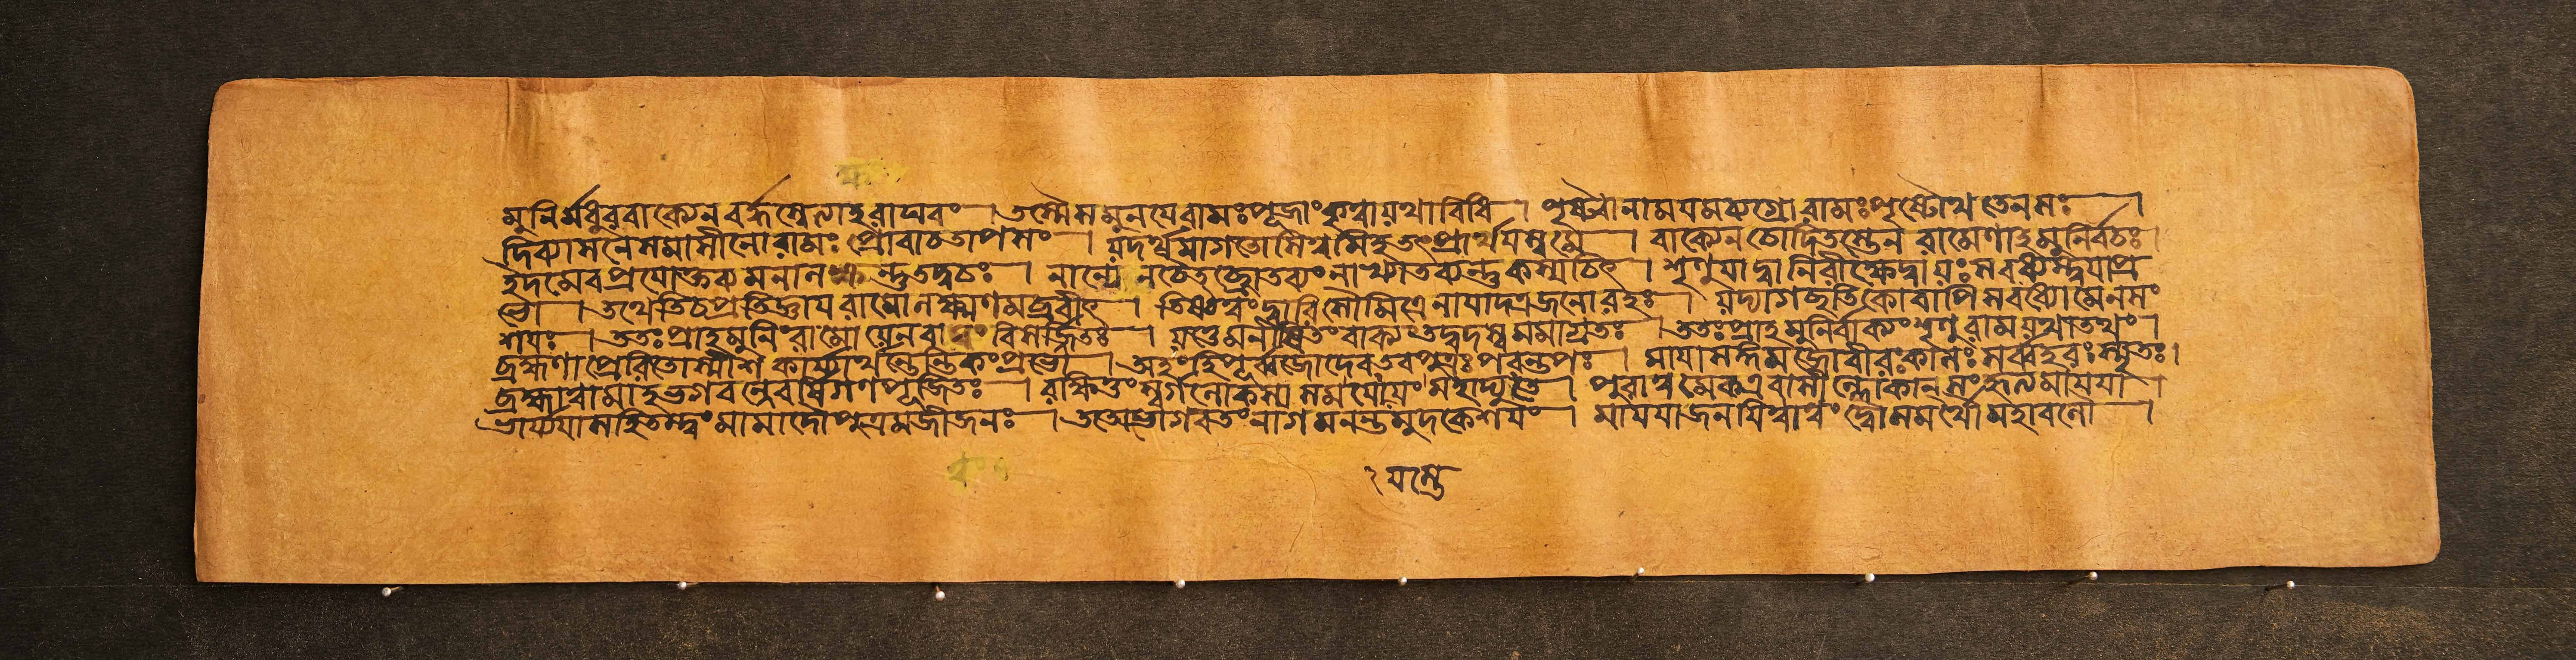 মুনির্মধুৰবাক্যেন বর্দ্ধস্বেত্যাহ ৰাঘবং । তস্মৈ স মুনযে ৰামঃ পূজাং কৃত্বা যথাবিধি । পৃষ্ট্বানামযমব্যগ্রো ৰামঃ পৃষ্টোথ তেন সঃ ।
দিব্যাসনে সমাসীনো ৰামঃ প্রোবাচ তাপসং । যদর্থমাগতোসি ত্বমিহ তৎ প্রার্থযস্ব মে । বাক্যেন চোদিতস্তেন ৰামেণাহ মুনির্বচঃ ।
দ্বন্দ্বমেব প্রযোক্তব্যমনালক্ষ্যন্তু তদ্বচঃ । নান্যেন চৈতচ্ছ্রোতব্যং নাখ্যাতব্যন্তু কস্যচিৎ । শৃণুযাদ্বা নিৰীক্ষেদ্বা যঃ স বধ্যস্ত্বযা প্র
ভো । তথেতি চ প্রতিজ্ঞায ৰামো লক্ষ্মণমব্রবীৎ । তিষ্ঠ ত্বং দ্বাৰি সৌমিত্রে নাযাদত্র জনো ৰহঃ । যদ্যাগচ্ছতি কো বাপি স বধ্যো মে ন সং
শযঃ । ততঃ প্রাহ মুনিং ৰামো যেন বা ত্বং বিসর্জ্জিতঃ । যত্তে মনীষিতং বাক্যং তদ্বদস্ব মমাগ্রতঃ । ততঃ প্রাহ মুনির্বাক্যং শৃণু ৰাম যথাতথং ।
ব্রহ্মণা প্রেষিতোস্মীশ কার্য্যার্থন্তেন্তিকং প্রভো । অহং হি পূর্ব্বজো দেব তব পুত্রঃ পৰন্তপঃ । মাযাসঙ্গমজো বীৰঃ কালঃ সর্ব্বহৰঃ স্মৃতঃ ।
ব্রহ্মা ত্বামাহ ভগবান্দেবর্ষিগণপূজিতঃ । ৰক্ষিতুং স্বর্গলোকস্য সমযোযং মহাদ্যুতে । পুৰা ত্বমেক এবাসীল্লোকান্ সংহৃত্য মাযযা ।
ভার্য্যযা সহিতস্ত্বং মামাদৌ পুত্রমজীজনঃ । তথা ভোগবতং নাগমনন্তমুদকেশযং । মাযযা জনযিত্বা ত্বং দ্বৌ সসত্বৌ মহাবলৌ ।